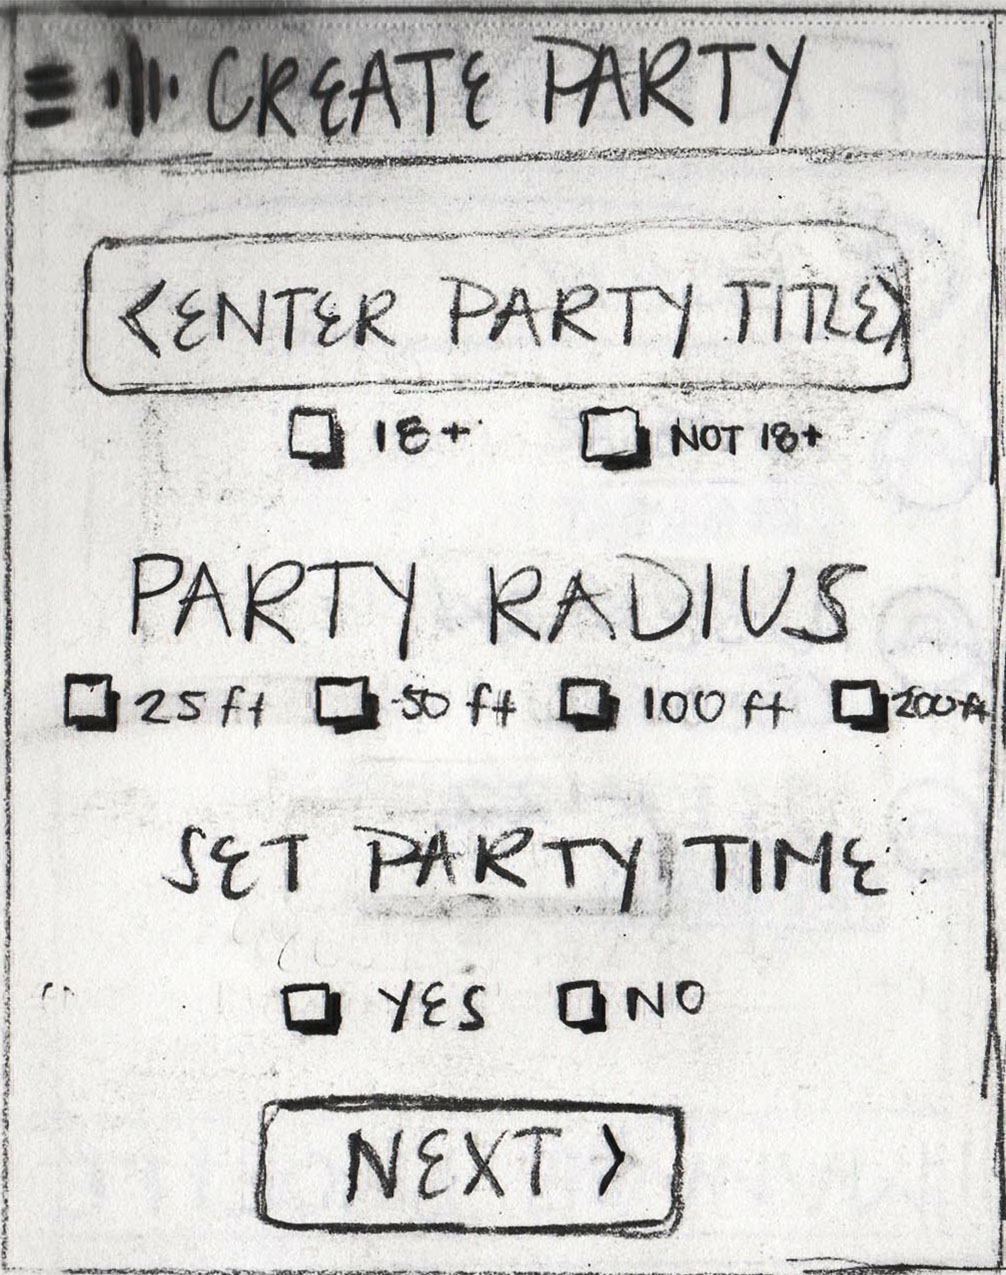 CREATE PARTY
<ENTER PARTY TITLE>
18+ NOT 18+
PARTY RADIUS
25 ft 50 ft 100 ft 200 ft
SET PARTY TIME
YES NO
NEXT >